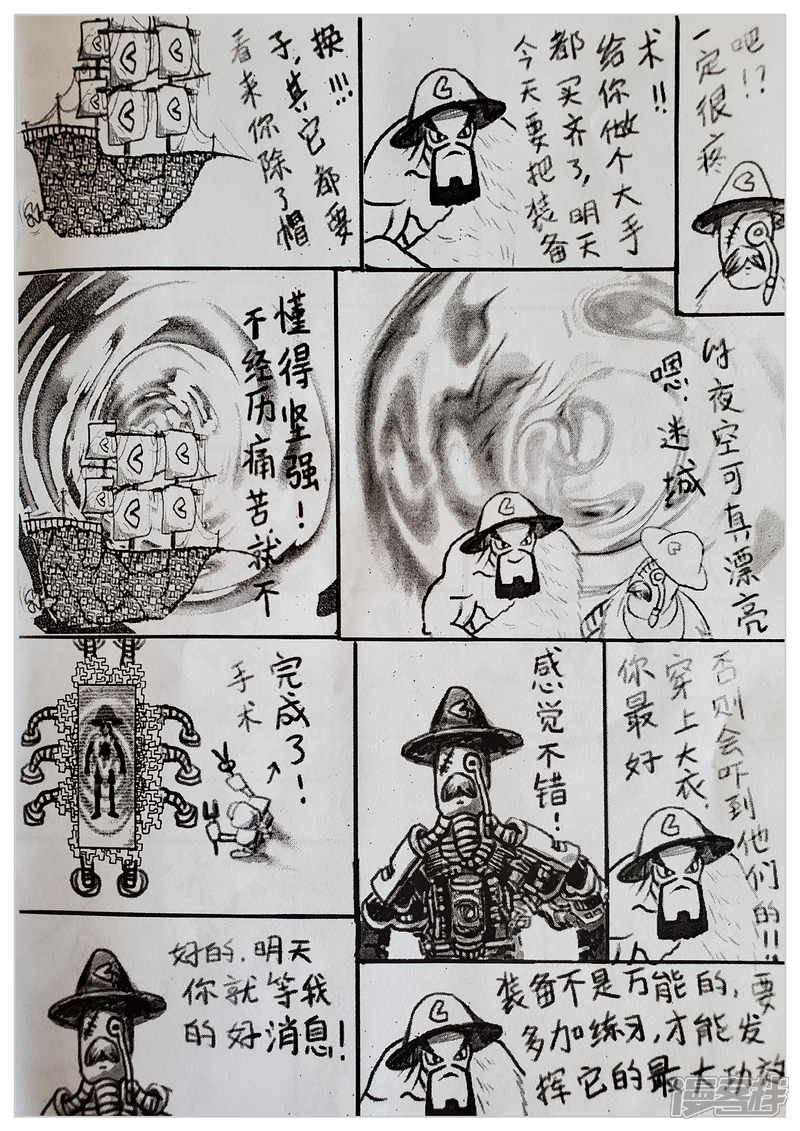 看来你除了帽
子,其它都要
换!!!
今天要把装备
都买齐了,明天
给你做个大手
术!!
一定很疼
吧!?
不经历痛苦就不
懂得坚强!
嗯.迷城
的夜空可真漂亮
手术
完成了!
感觉不错!
你最好
穿上大衣,
否则会吓到他们的!!
好的,明天
你就等我
的好消息!
装备不是万能的,要
多加练习,才能发
挥它的最大功效
漫客栈